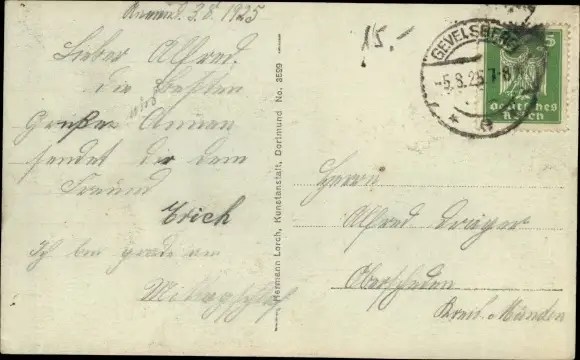 3.8.1925
15.-
Lieber Alfred.
die besten
Grüße
sendet dir dein
Freund
Erich
Ich bin grade am
Hermann Lorch, Kunstanstalt, Dortmund No. 3599
GEVELSBERG
-5.8.25.7-8
5
Deutsches
Reich
Herrn
Alfred
Oberscheden
Kreis. Münden